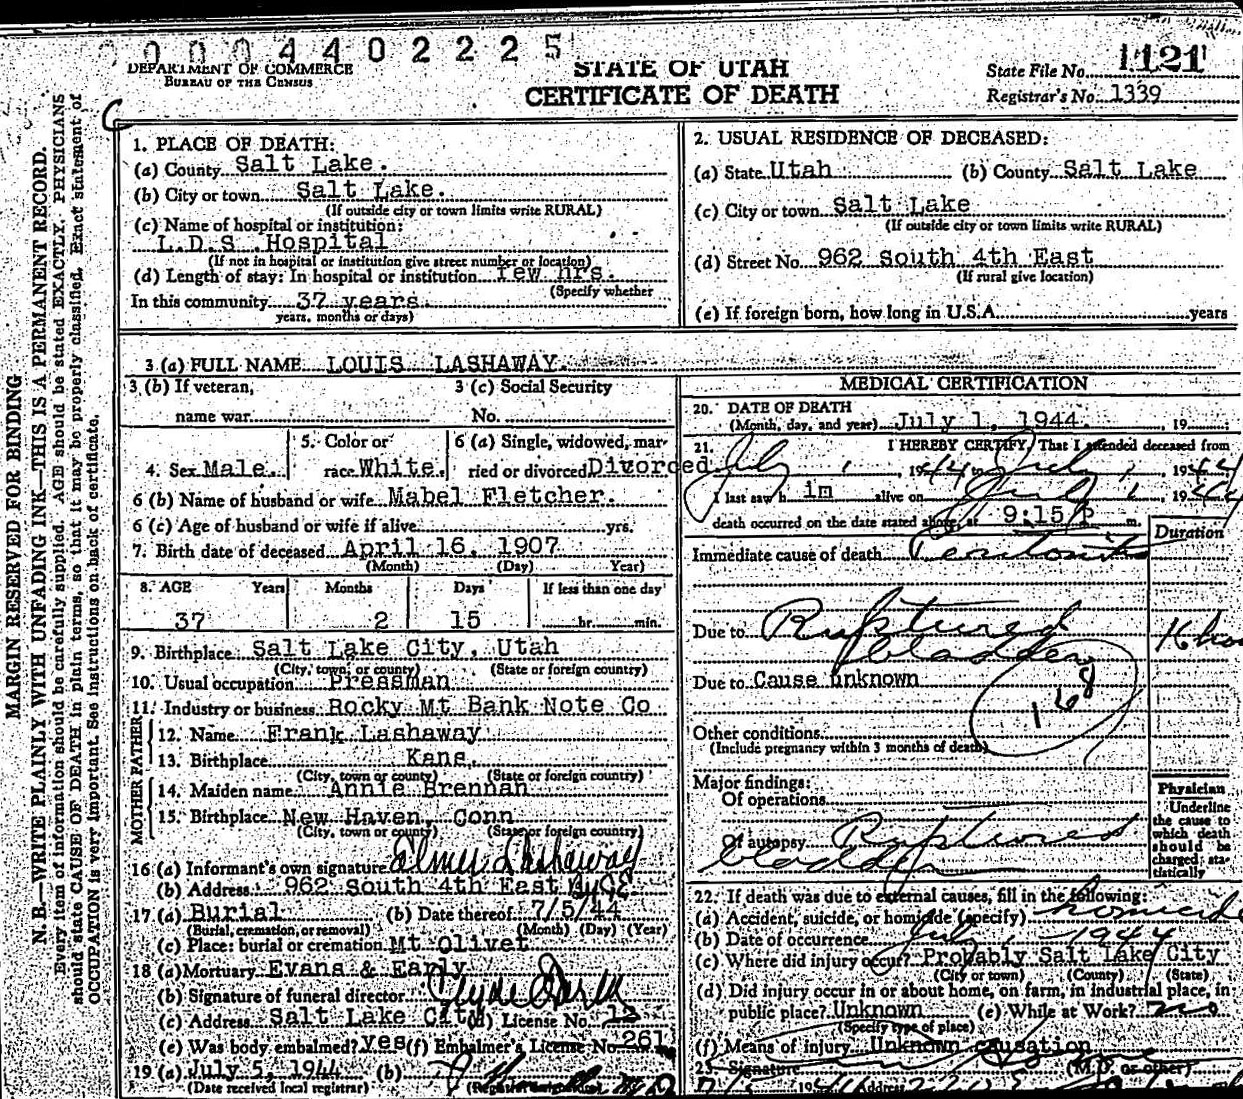 0 0 0 4 4 0 2 2 2 5
DEPARTMENT OF COMMERCE
BUREAU OF THE CENSUS
STATE OF UTAH
CERTIFICATE OF DEATH
State File No. 1121
Registrar's No. 1339
MARGIN RESERVED FOR BINDING
N. B.—WRITE PLAINLY WITH UNFADING INK—THIS IS A PERMANENT RECORD.
Every item of information should be carefully supplied. AGE should be stated EXACTLY. PHYSICIANS
should state CAUSE OF DEATH in plain terms, so that it may be properly classified. Exact statement of
OCCUPATION is very important. See instructions on back of certificate.
1. PLACE OF DEATH:
(a) County Salt Lake.
(b) City or town Salt Lake.
(If outside city or town limits write RURAL)
(c) Name of hospital or institution:
L.D.S. Hospital
(If not in hospital or institution give street number or location)
(d) Length of stay: In hospital or institution few hrs.
(Specify whether
In this community 37 years.
years, months or days)
2. USUAL RESIDENCE OF DECEASED:
(a) State Utah (b) County Salt Lake
(c) City or town Salt Lake
(If outside city or town limits write RURAL)
(d) Street No. 962 South 4th East
(If rural give location)
(e) If foreign born, how long in U.S.A. years
3 (a) FULL NAME LOUIS LASHAWAY.
3 (b) If veteran,
name war
3 (c) Social Security
No.
4. Sex Male.
5. Color or
race White.
6 (a) Single, widowed, mar-
ried or divorced Divorced
6 (b) Name of husband or wife Mabel Fletcher.
6 (c) Age of husband or wife if alive yrs.
7. Birth date of deceased April 16, 1907
(Month) (Day) Year)
8. AGE Years Months Days If less than one day
37 2 15 hr. min.
9. Birthplace Salt Lake City, Utah
(City, town, or county) (State or foreign country)
10. Usual occupation Pressman
11. Industry or business Rocky Mt Bank Note Co
FATHER
12. Name Frank Lashaway
13. Birthplace Kans.
(City, town or county) (State or foreign country)
MOTHER
14. Maiden name Annie Brennan
15. Birthplace New Haven, Conn
(City, town or county) (State or foreign country)
16 (a) Informant's own signature Elmer Lashaway
(b) Address 962 South 4th East By CE
17 (a) Burial (b) Date thereof 7/5/44
(Burial, cremation, or removal) (Month) (Day) (Year)
(c) Place: burial or cremation Mt Olivet
18 (a) Mortuary Evans & Early
(b) Signature of funeral director
(c) Address Salt Lake City (d) License No. 12
(e) Was body embalmed? yes (f) Embalmer's License No. 261
19 (a) July 5, 1944 (b)
(Date received local registrar)
MEDICAL CERTIFICATION
20. DATE OF DEATH
(Month, day, and year) July 1, 1944. 19
21. I HEREBY CERTIFY, That I attended deceased from
July 1, 1944 to July 1, 1944
I last saw h im alive on July 1, 1944
death occurred on the date stated above, at 9:15 P m.
Duration
Immediate cause of death Peritonitis
Due to Ruptured
bladder
16 hos
Due to Cause unknown
168
Other conditions
(Include pregnancy within 3 months of death)
Major findings:
Of operations
Of autopsy Ruptured
bladder
Physician
Underline
the cause to
which death
should be
charged sta-
tistically
22. If death was due to external causes, fill in the following:
(a) Accident, suicide, or homicide (specify) homicide
(b) Date of occurrence July 1 - 1944
(c) Where did injury occur? Probably Salt Lake City
(City or town) (County) (State)
(d) Did injury occur in or about home, on farm, in industrial place, in
public place? Unknown (e) While at Work? no
(Specify type of place)
(f) Means of injury Unknown causation
23. Signature (M.D. or other)
Address